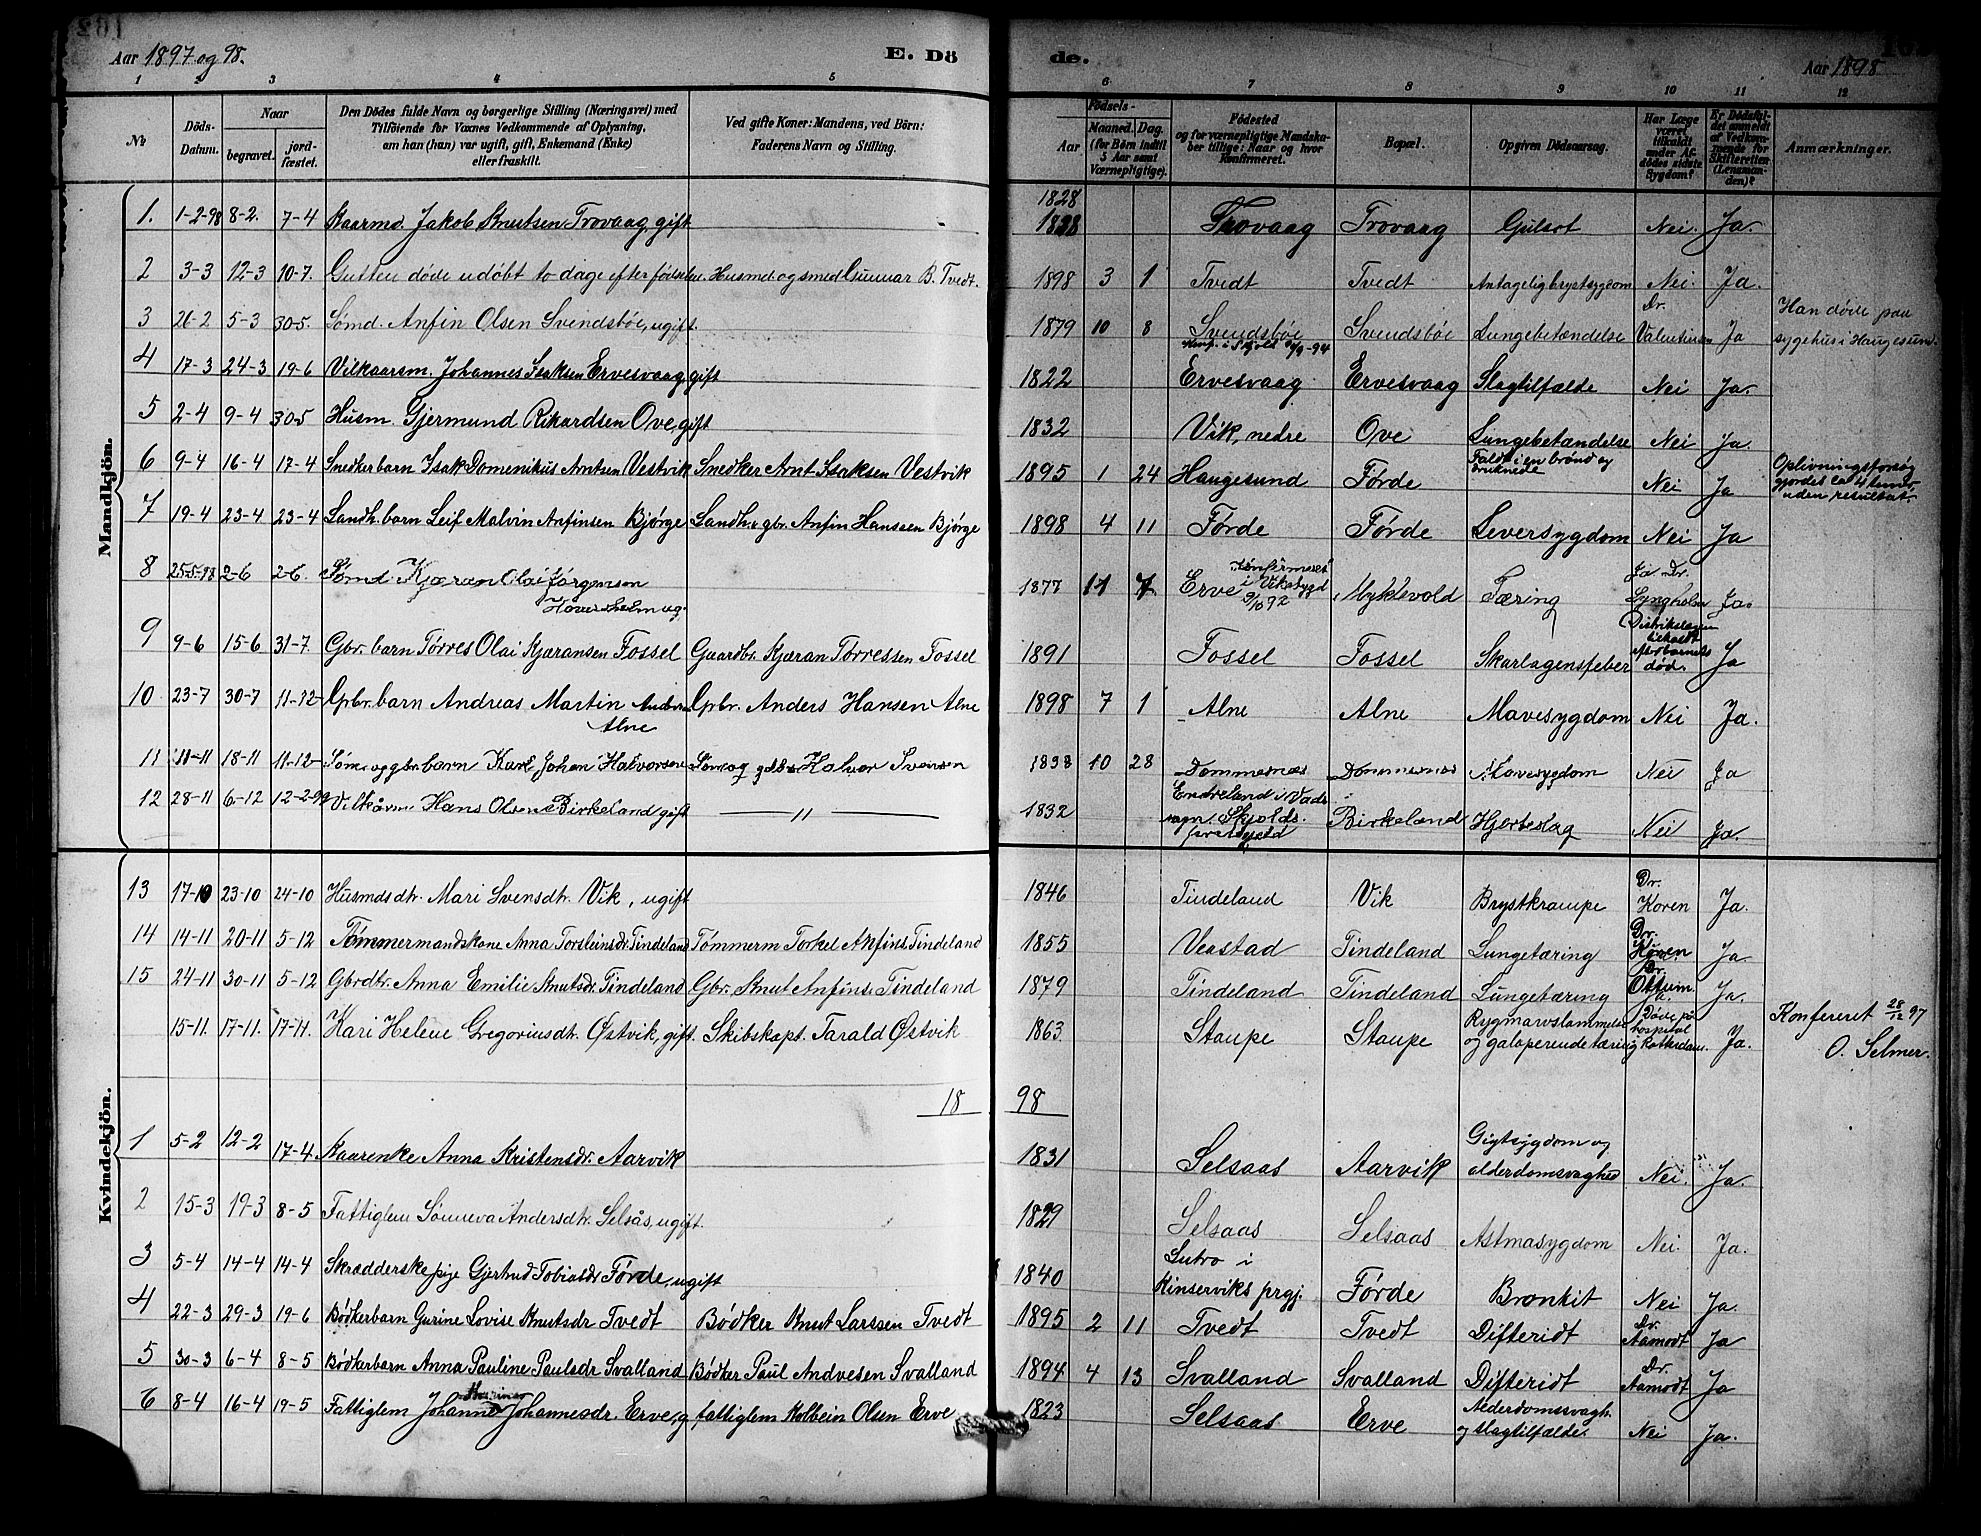 Aar 1897 og 98.
E. Dö
de.
Aar 1898
1 2 3 4 5 6 7 8 9 10 11 12
№ Döds-Datum. Naar begravet. jordfæstet. Den Dödes fulde Navn og borgerlige Stilling (Næringsvei) med Tilföiende for Voxnes Vedkommende af Oplysning, om han (hun) var ugift, gift, Enkemand (Enke) eller fraskilt. Ved gifte Koner: Mandens, ved Börn: Faderens Navn og Stilling. Födsels- Aar Maaned. Dag. (for Börn indtil 5 Aar samt Værnepligtige). Födested og for værnepligtige Mandskaber tillige: Naar og hvor Konfirmeret. Bopæl. Opgiven Dödsaarsag. Har Læge været tilkaldt under Afdödes sidste Sygdom? Er Dödsfaldet anmeldt af Vedkommende for Skifteretten (Lensmanden)? Anmærkninger.
Mandkjön.
1. 1-2-98 8-2. 7-4 Kaarmd. Jakob Knutsen Trovaag, gift 1828 1828 Trovaag Trovaag Gulsot Nei. Ja.
2 3-3 12-3 10-7. Gutten døde udøbt to dage efter fødselen. Husmd. og smed Gunnar B. Tvedt. 1898 3 1 Tvedt Tvedt Antagelig brystsygdom Nei. Ja.
3 26-2 5-3 30-5. Sømd. Anfin Olsen Svendsbøe, ugift. 1879 10 8 Svendsbøe Konf. i Skjold -94 Svendsbøe Lungebetændelse Dr. Valentinsen Ja Han døde paa sygehus i Haugesund.
4 17-3 24-3 19-6 Vilkaarsm. Johannes Isaksen Ervesvaag, gift 1822 Ervesvaag Ervesvaag Slagtilfælde Nei Ja.
5 2-4 9-4 30-5 Husm. Gjermund Rikardsen Ove, gift 1832 Vik, nedre Ove Lungebetændelse Nei Ja.
6 9-4 16-4 17-4 Snedkerbarn Isak Domenikus Arntsen Vestvik Snedker Arnt Isaksen Vestvik 1895 1 24 Haugesund Førde Faldt i en brønd og druknede Nei Ja Oplivningsforsøg gjordes ca 4 timer uden resultat.
7 19-4 23-4 23-4 Landh. barn Leif Malvin Anfinsen Bjørge Landh. & gbr. Anfin Hanssen Bjørge 1898 4 11 Førde Førde Leversygdom Nei Ja
8 25-5-98 2-6 2-6. Sømd Kjæran Olai Jørgensen 1877 11 7 Erve konfirmeret i Viksbygd 9/10 92 Myklevold Tæring Ja Dr. Lyngholm Ja.
9 9-6 15-6 31-7. Gbr. barn Tørres Olai Kjæransen Fossel Gaardbr. Kjæran Tørressen Fossel 1891 Fossel Fossel Skarlagensfeber Distriktslægen tilkaldt efter barnets død. Ja
10 23-7 30-7 11-12- Gbr. barn Andreas Martin Anders. Alne Gbr. Anders Hansen Alne 1898 7 1 Alne Alne Mavesygdom Nei Ja.
11 11-11 18-11 11-12- Søm. og gbr. barn Karl Johan Halvorsen Søm. og gdbr. Halvor Svensen 1898 10 28 Dommersnæs Dommersnæs Mavesygdom Nei Ja
12 28-11 6-12 12-2-99 Vilkårm. Hans Olsen Birkeland gift — 11 — 1832 Endreland i Vads sogn Skjolds præstegjeld Birkeland Hjerteslag Nei Ja.
Kvindekjön.
13 17-10 23-10 24-10 Husmdsdtr. Mari Svensdtr. Vik, ugift 1846 Tindeland Vik Brystkrampe Dr. Koren Ja.
14 14-11 20-11 5-12 Tømmermandskone Anna Torsteinsdr. Tindeland Tømmerm Torkel Anfins. Tindeland 1855 Veastad Tindeland Lungetæring Dr. Koren Ja.
15 24-11 30-11 5-12 Gbrdtr. Anna Emilie Knutsdr. Tindeland Gbr. Knut Anfins. Tindeland 1879 Tindeland Tindeland Lungetæring Dr. Ottum. Ja.
15-11. 17-11. 17-11. Kari Helene Gregoriusdtr. Østvik, gift. Skibskapt. Tarald Østvik 1863 Staupe Staupe Rygmarvslammelse og galoperende tæring Ja. Døde på hospital i Rotterdam. Ja. Konfereret 28/12 97 O. Selmer.
18 98
1 5-2 12-2 17-4 Kaarenke Anna Kristensdr. Aarvik 1831 Selsaas Aarvik Gigtsygdom og alderdomssvaghed Nei. Ja.
2 15-3 19-3 8-5 Fattiglem Sønneva Andersdtr. Selsås, ugift. 1829 Selsaas Selsaas Astmasygdom Nei. Ja.
3 5-4 14-4 14-4 Skrædderskepige Gjertrud Tobiasdr Førde, ugift 1840 Lutro i Kinserviks prgj. Førde Bronkit Nei Ja.
4 22-3 29-3 19-6 Bødkerbarn Gurine Lovise Knutsdr Tvedt Bødker Knut Larssen Tvedt 1895 2 11 Tvedt Tvedt Difteridt Dr. Aamodt Ja
5 30-3 6-4 8-5 Bødkerbarn Anna Pauline Paulsdr Svalland Bødker Paul Andresen Svalland 1894 4 13 Svalland Svalland Difteridt Dr. Aamodt Ja
6 8-4 16-4 19-5 Fattiglem Johanne Johannesdr. Erve, g fattiglem Kolbein Olsen Erve 1823 Selsaas Erve Alderdomssvagh. og slagtilfælde. Nei Ja.